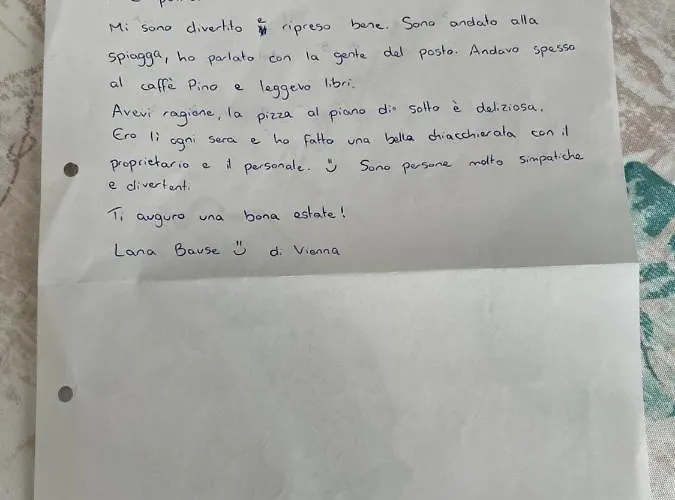 Mi sono divertito e ripreso bene. Sono andato alla
spiagga, ho parlato con la gente del posto. Andavo spesso
al caffè Pino e leggevo libri.
Avevi ragione, la pizza al piano di sotto è deliziosa.
Ero lì ogni sera e ho fatto una bella chiacchierata con il
proprietario e il personale. Sono persone molto simpatiche
e divertenti.
Ti auguro una bona estate!
Lana Bause di Vienna